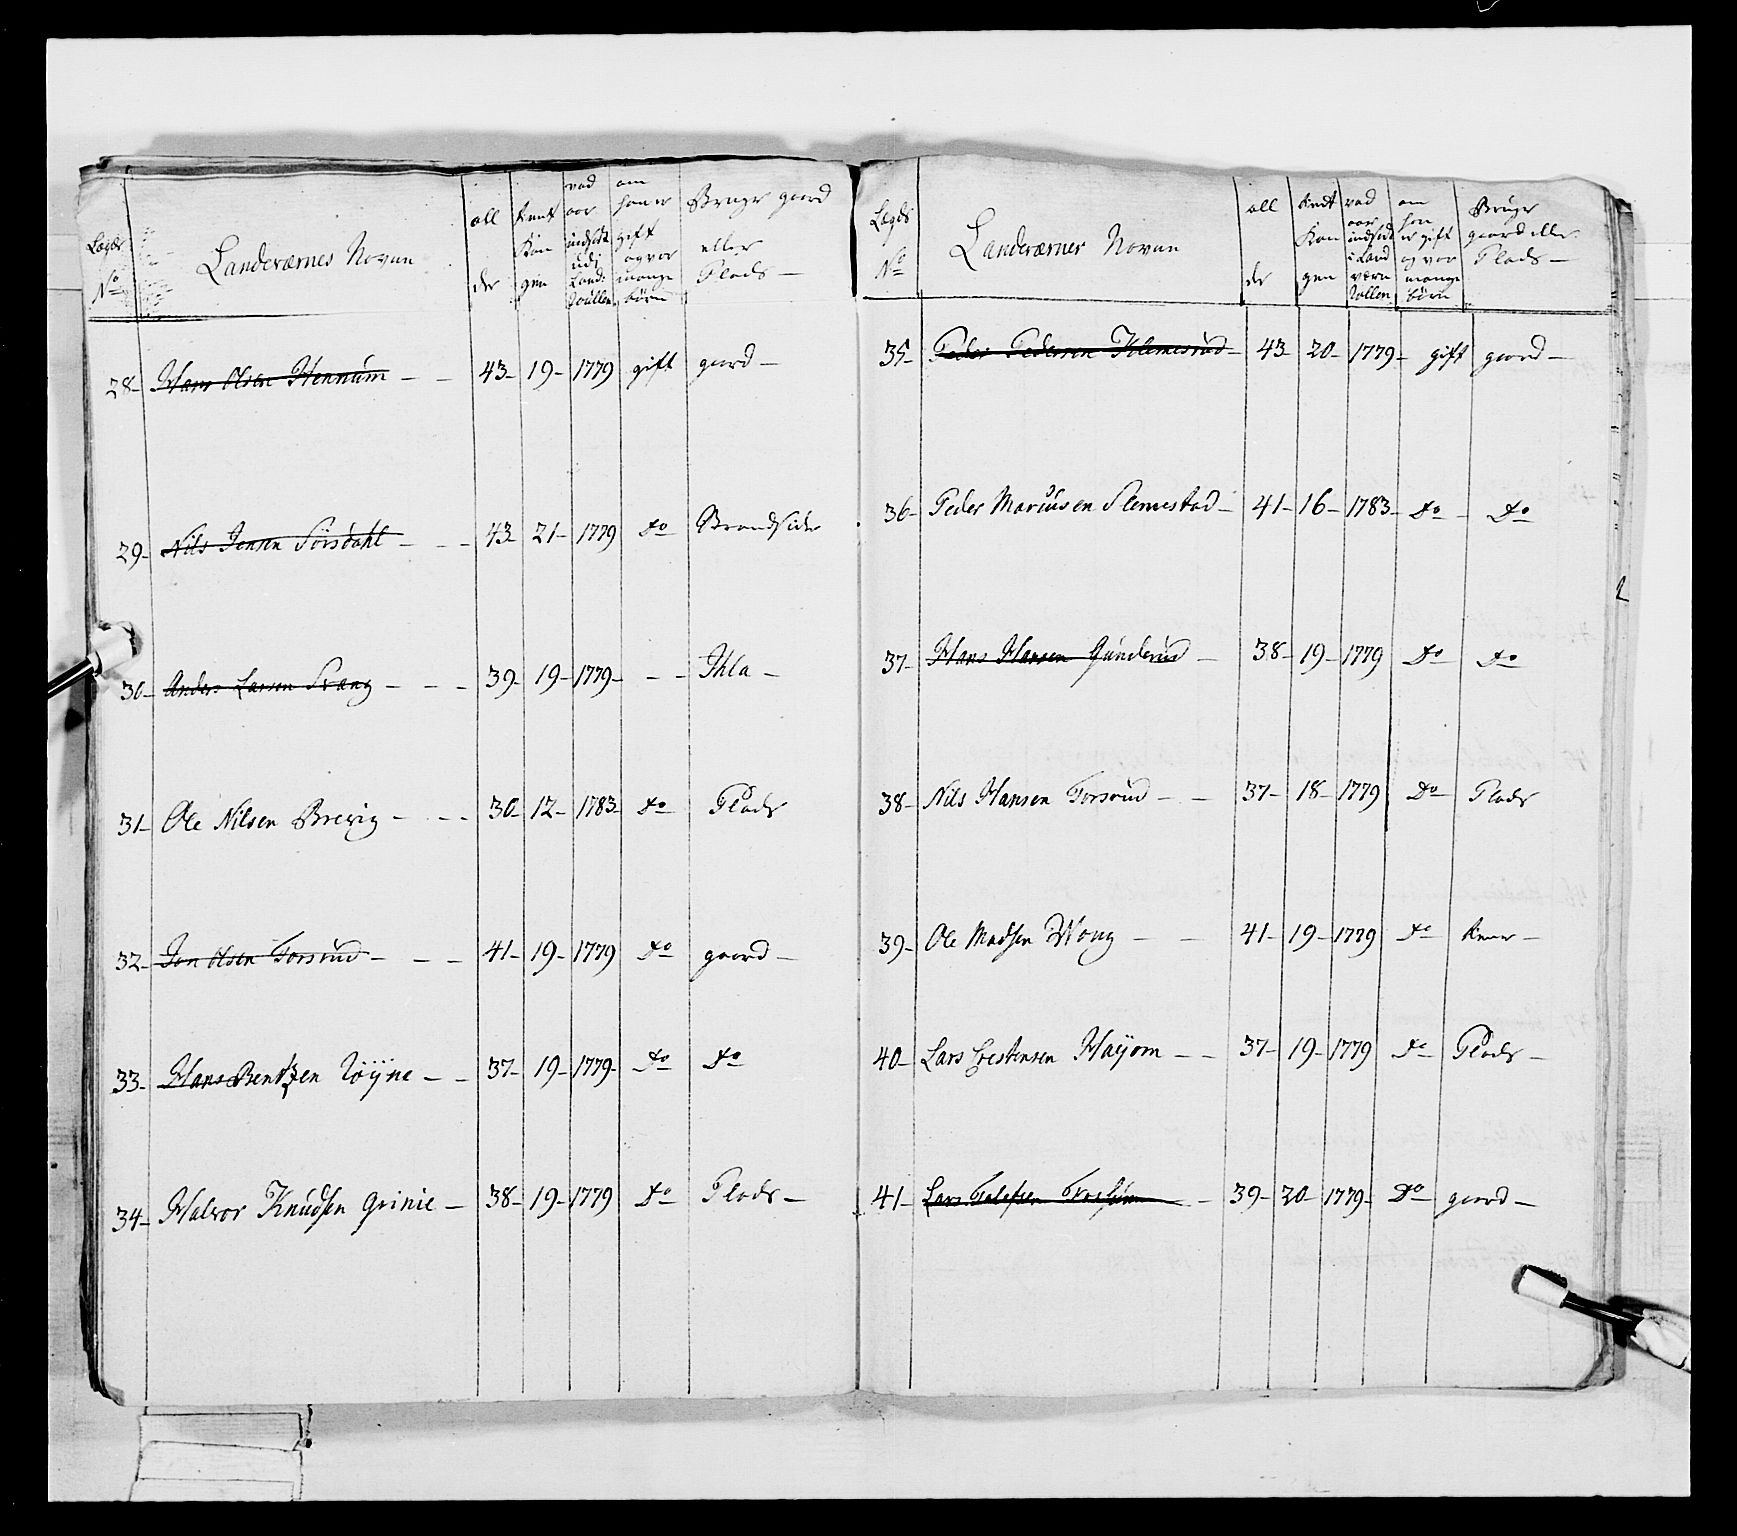 Lægds No
Landeværnes Navne
all der
tient Kon gen
vad aar indsat udj Land: Roullen
om han er gift og vor mange børn
Bruger gaard eller Plads —
28 — Hans Olsen Hennum — — 43 — 19 — 1779 gift gaard —
29 — Nils Jensen Sørsdahl — — — 43 — 21 — 1779 Do Strandsider
30 — Anders Larsen Svang — — — 39 — 19 — 1779 — — — Ihla —
31 — Ole Nilsen Brevig — — — 30 — 12 — 1783 — Do Plads
32 — Jon Olsen Torsrud — — — 41 — 19 — 1779 Do gaard —
33 — Hans Bentzen Røÿne — — 37 — 19 — 1779 — Do Do
34 — Halvor Knudsen Grinie — 38 — 19 — 1779 Do Plads —
Lægds No
Landeværnes Navne
all der
tient Kon gen
vad aar indsat i Land værn Rollen
om han er gift og vor mange børn
Bruger gaard eller Plads —
35 — Peder Pedersen Klemesrud — 43 20 — 1779 — gift gaard —
36 — Peder Mariusen Slemestad — 41 — 16 — 1783 — Do — Do
37 — Hans Hansen Gunderud — 38 — 19 — 1779 Do Do
38 — Nils Hansen Torsrud — — 37 — 18 — 1779 Do Plads
39 — Ole Madsen Wong — — 41 — 19 — 1779 Do
40 — Lars Crestensen Haÿom — — 37 — 19 — 1779 Do Plads —
41 — Lars — 39 — 20 — 1779 — Do gaard —